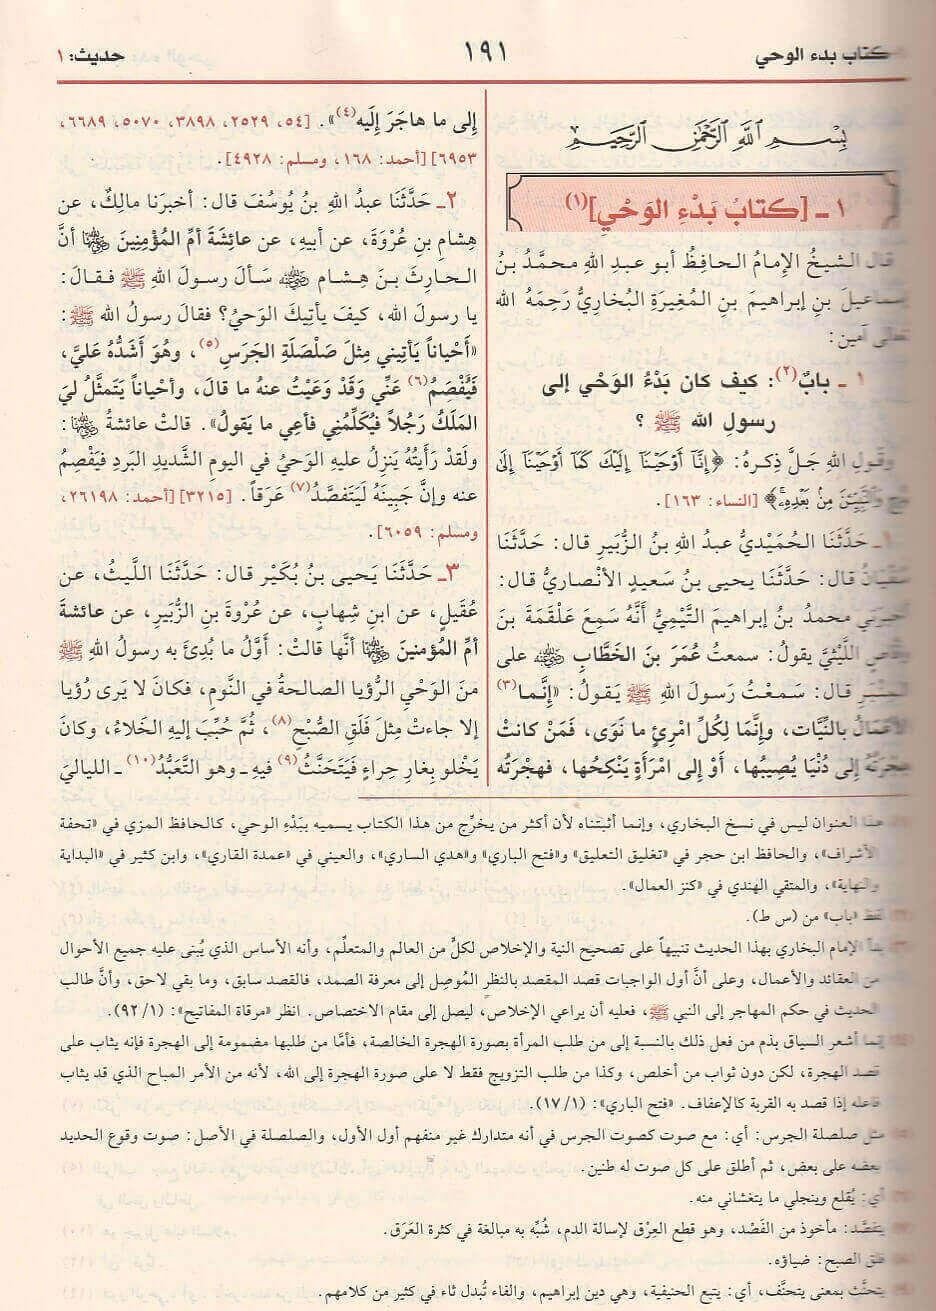 كتاب بدء الوحي
١٩١
حديث: ١
بِسْمِ اللَّهِ الرَّحْمَنِ الرَّحِيمِ
١ ـ [كتابُ بَدْءِ الوَحْيِ](١)
قال الشيخُ الإمامُ الحافِظُ أبو عبدِ اللهِ محمَّدُ بنُ
إسماعيلَ بنِ إبراهيمَ بنِ المُغيرَةِ البُخاريُّ رَحِمَهُ الله
تعالى آمين:
١ ـ بابٌ(٢): كيف كان بَدْءُ الوَحْيِ إلى
رسولِ الله ﷺ ؟
وقولِ اللهِ جَلَّ ذِكرهُ: ﴿إِنَّآ أَوْحَيْنَآ إِلَيْكَ كَمَآ أَوْحَيْنَآ إِلَىٰ
نُوحٍ وَالنَّبِيِّـۧنَ مِنۢ بَعْدِهِۦ﴾ [النساء: ١٦٣].
١ـ حَدَّثَنَا الحُمَيْدِيُّ عبدُ الله بنُ الزُّبَيرِ قال: حَدَّثَنَا
سُفْيَانُ قال: حَدَّثَنَا يحيى بنُ سَعيدٍ الأنْصاريُّ قال:
أخبرني محمدُ بنُ إبراهيمَ التَّيْمِيُّ أَنَّهُ سَمِعَ عَلْقَمَةَ بنَ
وقَّاصٍ اللَّيْثِيَّ يقولُ: سمعتُ عُمَرَ بنَ الخَطَّابِ ﵁ على
المِنْبَرِ قال: سَمَعْتُ رَسولَ اللهِ ﷺ يَقولُ: «إنَّما(٣)
الأَعْمَالُ بالنِّيَّات، وإنَّمَا لِكُلِّ امْرِئٍ ما نَوَى، فَمَنْ كانتْ
هِجْرَتُهُ إلى دُنْيَا يُصِيبُها، أَوْ إلى امْرَأَةٍ يَنْكِحُها، فهِجْرَتُه
إلى ما هاجَرَ إلَيه(٤)». [٥٤، ٢٥٢٩، ٣٨٩٨، ٥٠٧٠، ٦٦٨٩،
٦٩٥٣] [أحمد: ١٦٨، ومسلم: ٤٩٢٨].
٢ـ حَدَّثَنَا عبدُ الله بنُ يُوسُفَ قال: أخبرنا مالِكٌ، عن
هِشامِ بنِ عُرْوَةَ، عن أبيهِ، عن عائِشَةَ أمِّ المُؤْمِنِينَ ﵂ أنَّ
الحارِثَ بنَ هِشامٍ ﵁ سَألَ رسولَ اللهِ ﷺ فقالَ:
يا رسولَ الله، كيفَ يأتِيكَ الوَحْيُ؟ فقالَ رسولُ الله ﷺ:
«أَحْياناً يَأتِيني مِثلَ صَلْصَلَةِ الجَرَسِ(٥)، وهُوَ أَشَدُّهُ عليَّ،
فَيُفْصَمُ(٦) عَنِّي وَقَدْ وَعَيْتُ عنهُ ما قالَ، وأحْياناً يَتَمثَّلُ ليَ
المَلَكُ رَجُلاً فيُكَلِّمُني فأعِي ما يَقولُ». قالتْ عائشةُ ﵂:
ولَقدْ رَأَيْتُهُ يَنزِلُ عليهِ الوَحْيُ في اليومِ الشَّديدِ البَردِ فيَفْصِمُ
عنه وإنَّ جَبِينَهُ لَيَتفَصَّدُ(٧) عَرَقاً. [٣٢١٥] [أحمد: ٢٦١٩٨،
ومسلم: ٦٠٥٩].
٣ـ حَدَّثَنَا يَحيى بنُ بُكَيْرٍ قال: حَدَّثَنَا اللَّيثُ، عن
عُقَيلٍ، عن ابنِ شِهابٍ، عن عُرْوَةَ بنِ الزُّبَيرِ، عن عائشةَ
أمِّ المُؤْمنينَ ﵂ أنها قالتْ: أوَّلُ ما بُدِئَ به رسولُ اللهِ ﷺ
منَ الوَحْيِ الرُّؤيا الصالحةُ في النَّومِ، فكانَ لا يَرى رُؤيا
إلا جاءتْ مِثلَ فَلَقِ الصُّبْحِ(٨)، ثُمَّ حُبِّبَ إليهِ الخَلاءُ، وكانَ
يَخْلو بِغارِ حِراءٍ فَيَتَحَنَّثُ(٩) فيهِ ـ وهو التَّعَبُّدُ(١٠) ـ اللياليَ
هذا العنوان ليس في نسخ البخاري، وإنما أثبتناه لأن أكثر من يخرِّج من هذا الكتاب يسميه ببَدْءِ الوحي، كالحافظ المزي في «تحفة
الأشراف»، والحافظ ابن حجر في «تغليق التعليق» و«فتح الباري» و«هدي الساري»، والعيني في «عمدة القاري»، وابن كثير في «البداية
والنهاية»، والمتقي الهندي في «كنز العمال».
لفظ «باب» من (س ط).
بدأ الإمام البخاري بهذا الحديث تنبيهاً على تصحيح النية والإخلاص لكلٍّ من العالم والمتعلِّم، وأنه الأساس الذي يُبنى عليه جميع الأحوال
من العقائد والأعمال، وعلى أنَّ أول الواجبات قصد المقصد بالنظر المُوصِل إلى معرفة الصمد، فالقصد سابق، وما بقي لاحق، وأنَّ طالب
الحديث في حكم المهاجر إلى النبي ﷺ، فعليه أن يراعي الإخلاص، ليصل إلى مقام الاختصاص. انظر «مرقاة المفاتيح»: (١/ ٩٢).
إنما أشعر السياق بذم من فعل ذلك بالنسبة إلى من طلب المرأة بصورة الهجرة الخالصة، فأمَّا من طلبها مضمومة إلى الهجرة فإنه يثاب على
قصد الهجرة، لكن دون ثواب من أخلص، وكذا من طلب التزويج فقط لا على صورة الهجرة إلى الله، لأنه من الأمر المباح الذي قد يثاب
فاعله إذا قصد به القربة كالإعفاف. «فتح الباري»: (١/ ١٧).
مثل صلصلة الجرس: أي: مع صوت كصوت الجرس في أنه متدارك غير منفهم أول الأول، والصلصلة في الأصل: صوت وقوع الحديد
بعضه على بعض، ثم أطلق على كل صوت له طنين.
أي: يُقلع وينجلي ما يتغشاني منه.
يتفصَّد: مأخوذ من الفَصْد، وهو قطع العِرْق لإسالة الدم، شُبِّه به مبالغة في كثرة العَرَق.
فلق الصبح: ضياؤه.
يتحنَّث بمعنى يتحنَّف، أي: يتبع الحنيفية، وهي دين إبراهيم، والفاء تُبدل ثاء في كثير من كلامهم.